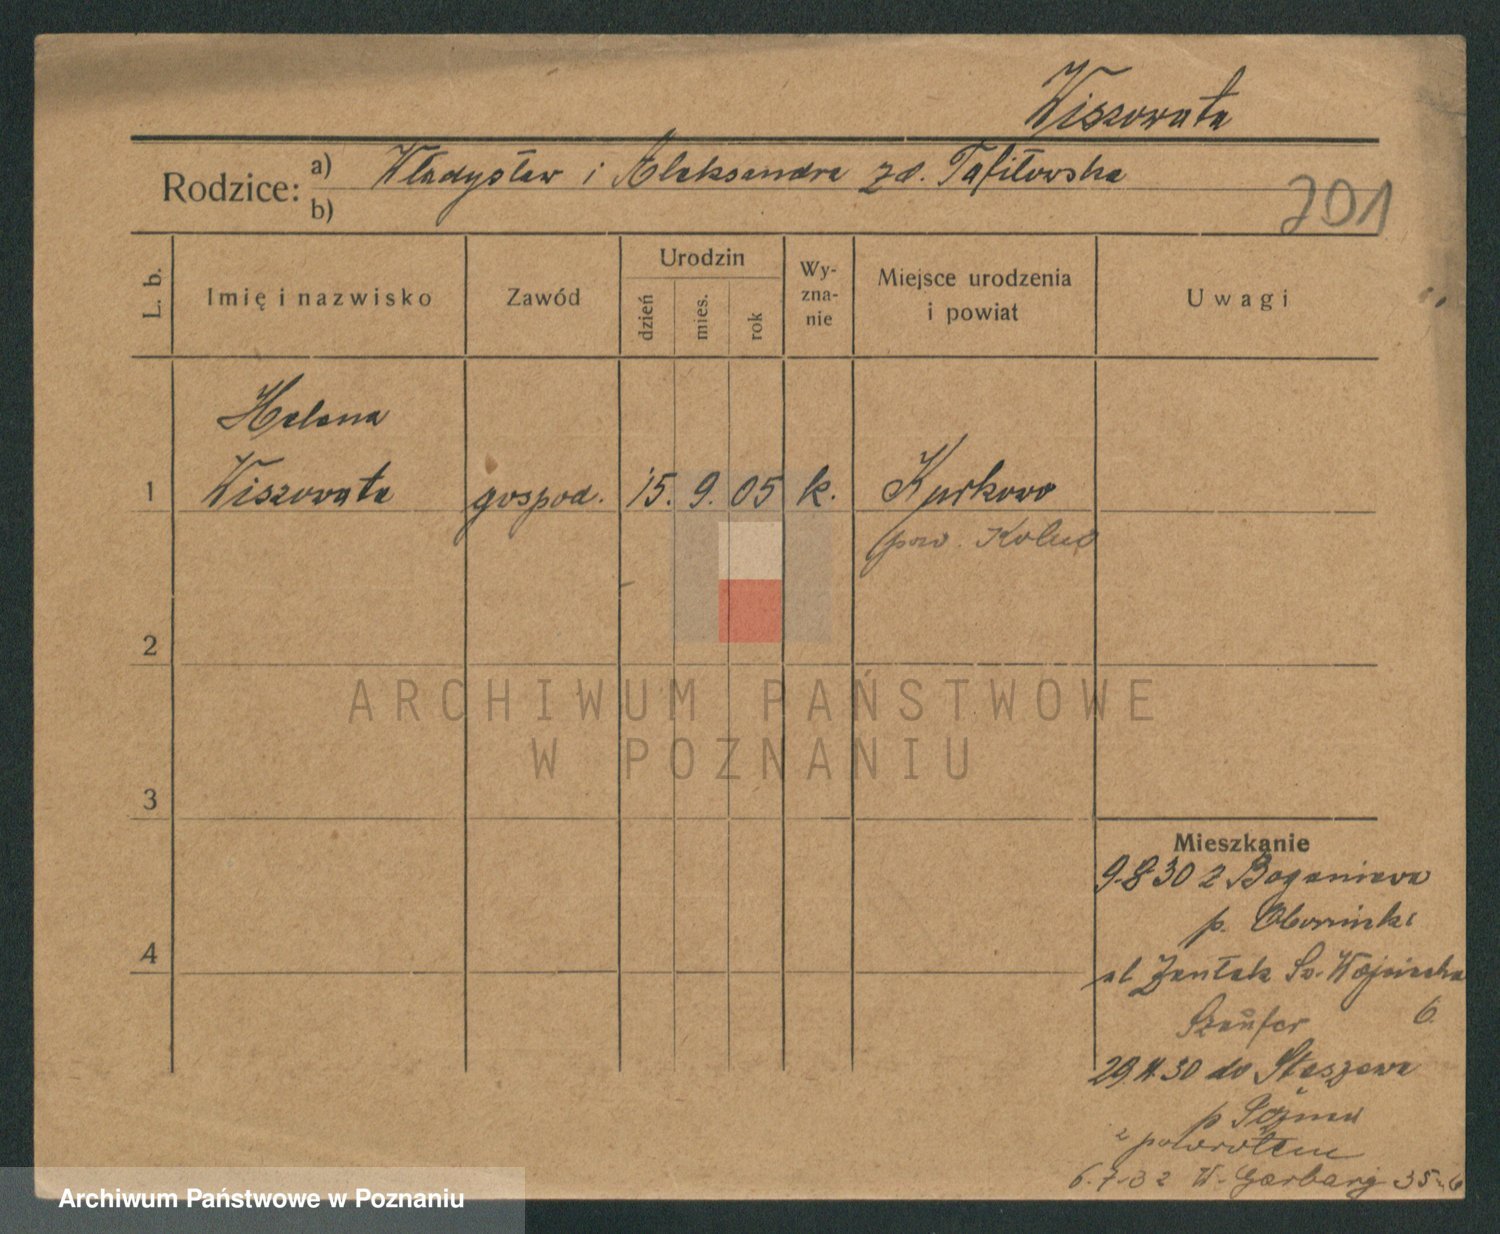 Wiszowata
Rodzice: a) Władysław i Aleksandra zd. Tafiłowska
b)
701
L. b.
Imię i nazwisko
Zawód
Urodzin
dzień
mies.
rok
Wy-
zna-
nie
Miejsce urodzenia
i powiat
Uwagi
Helena
1 Wiszowata gospod. 15. 9. 05 k. Kurkowo
pow. Kolno
2
3
4
Mieszkanie
9.8.30 z Boganiewa
p. Obornicki
ul Św. Wojciecha
6.
Szaufer
29.11.30 do Staszewa
p Pozna
z powrotem
6.7.32 W. Garbary 35
ARCHIWUM PAŃSTWOWE
W POZNANIU
Archiwum Państwowe w Poznaniu